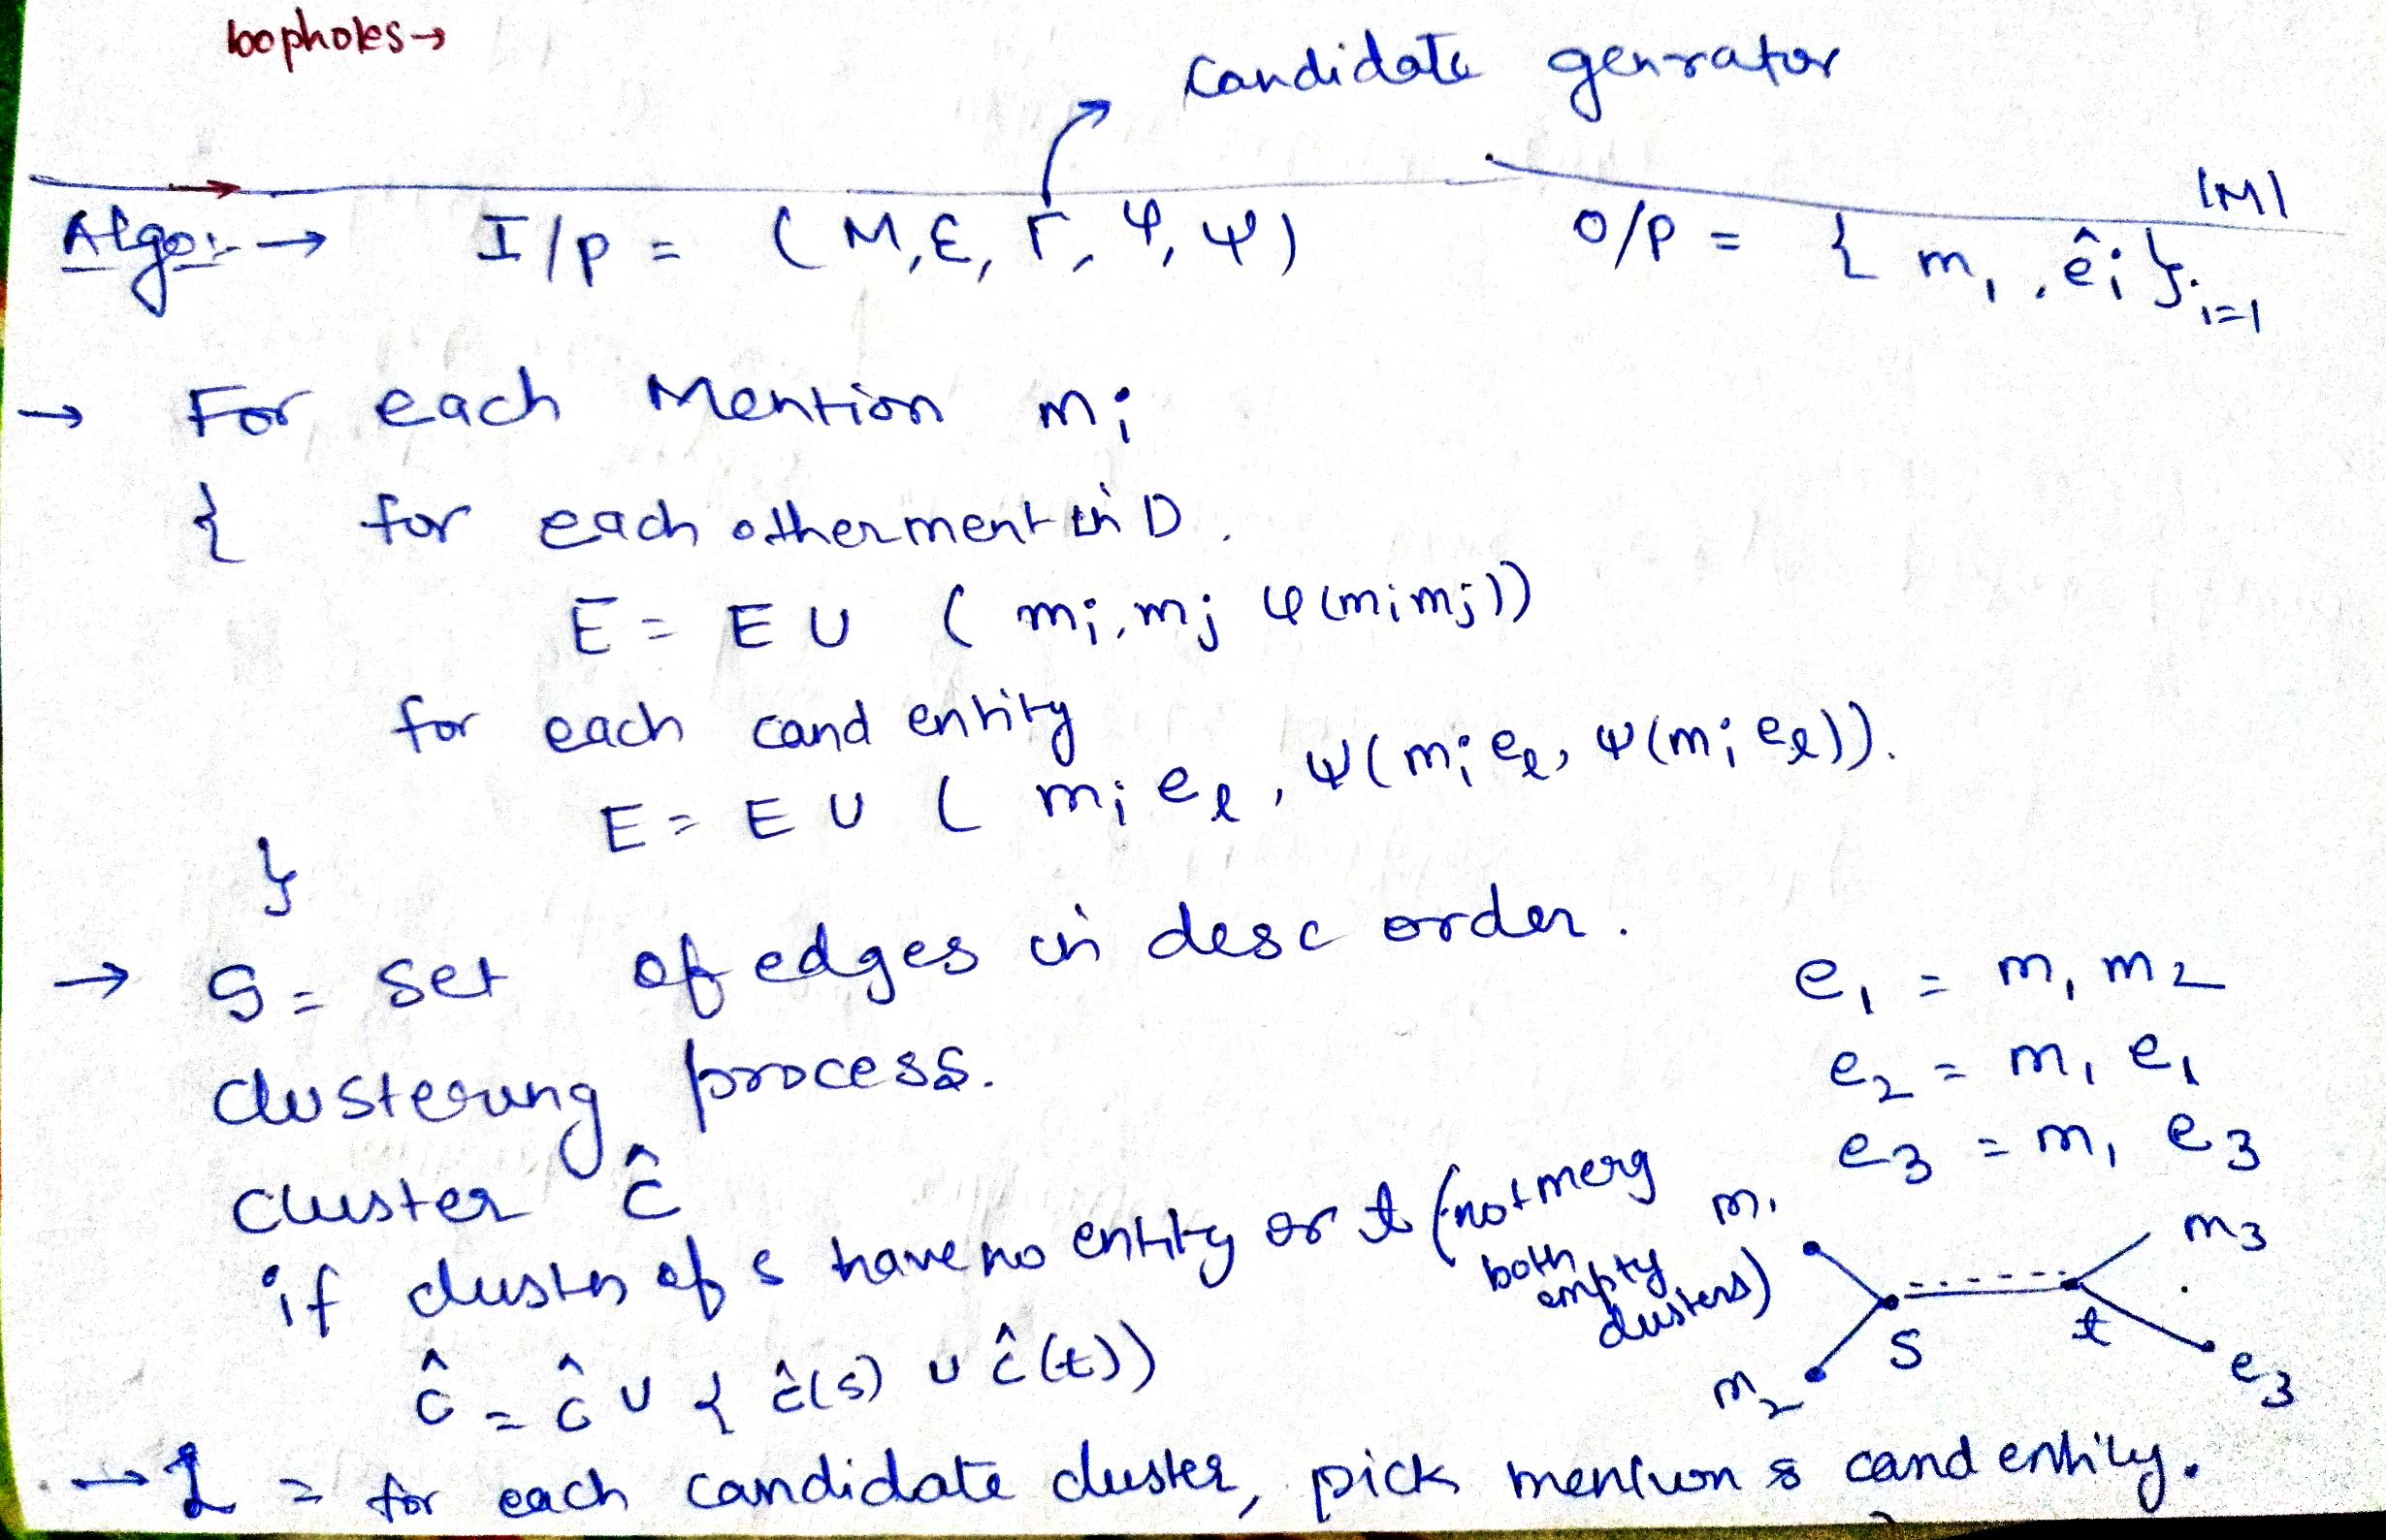 loopholes →
Candidate genrator
Algo:- → I/p = ( M, Ɛ, Γ, φ, ψ) O/P = { m₁, êᵢ }ᵢ₌₁ |M|
→ For each Mention mᵢ
{ for each other ment in D.
E = E ∪ ( mᵢ, mⱼ φ(mᵢmⱼ))
for each cand entity
E = E ∪ ( mᵢ eₗ, ψ(mᵢ eₗ, ψ(mᵢ eₗ)).
}
→ S = set of edges in desc order.
e₁ = m₁ m₂
clustering process.
e₂ = m₁ e₁
e₃ = m₁ e₃
cluster ĉ
if clusters of s have no entity or t (not merg
both empty
clusters)
m₁
m₃
S
t
m₂
e₃
ĉ = ĉ ∪ { ĉ(s) ∪ ĉ(t))
→ L = for each candidate cluster, pick mention & cand entity.